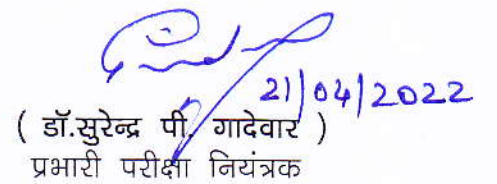 21/04/2022
( डॉ.सुरेन्द्र पी. गादेवार )
प्रभारी परीक्षा नियंत्रक